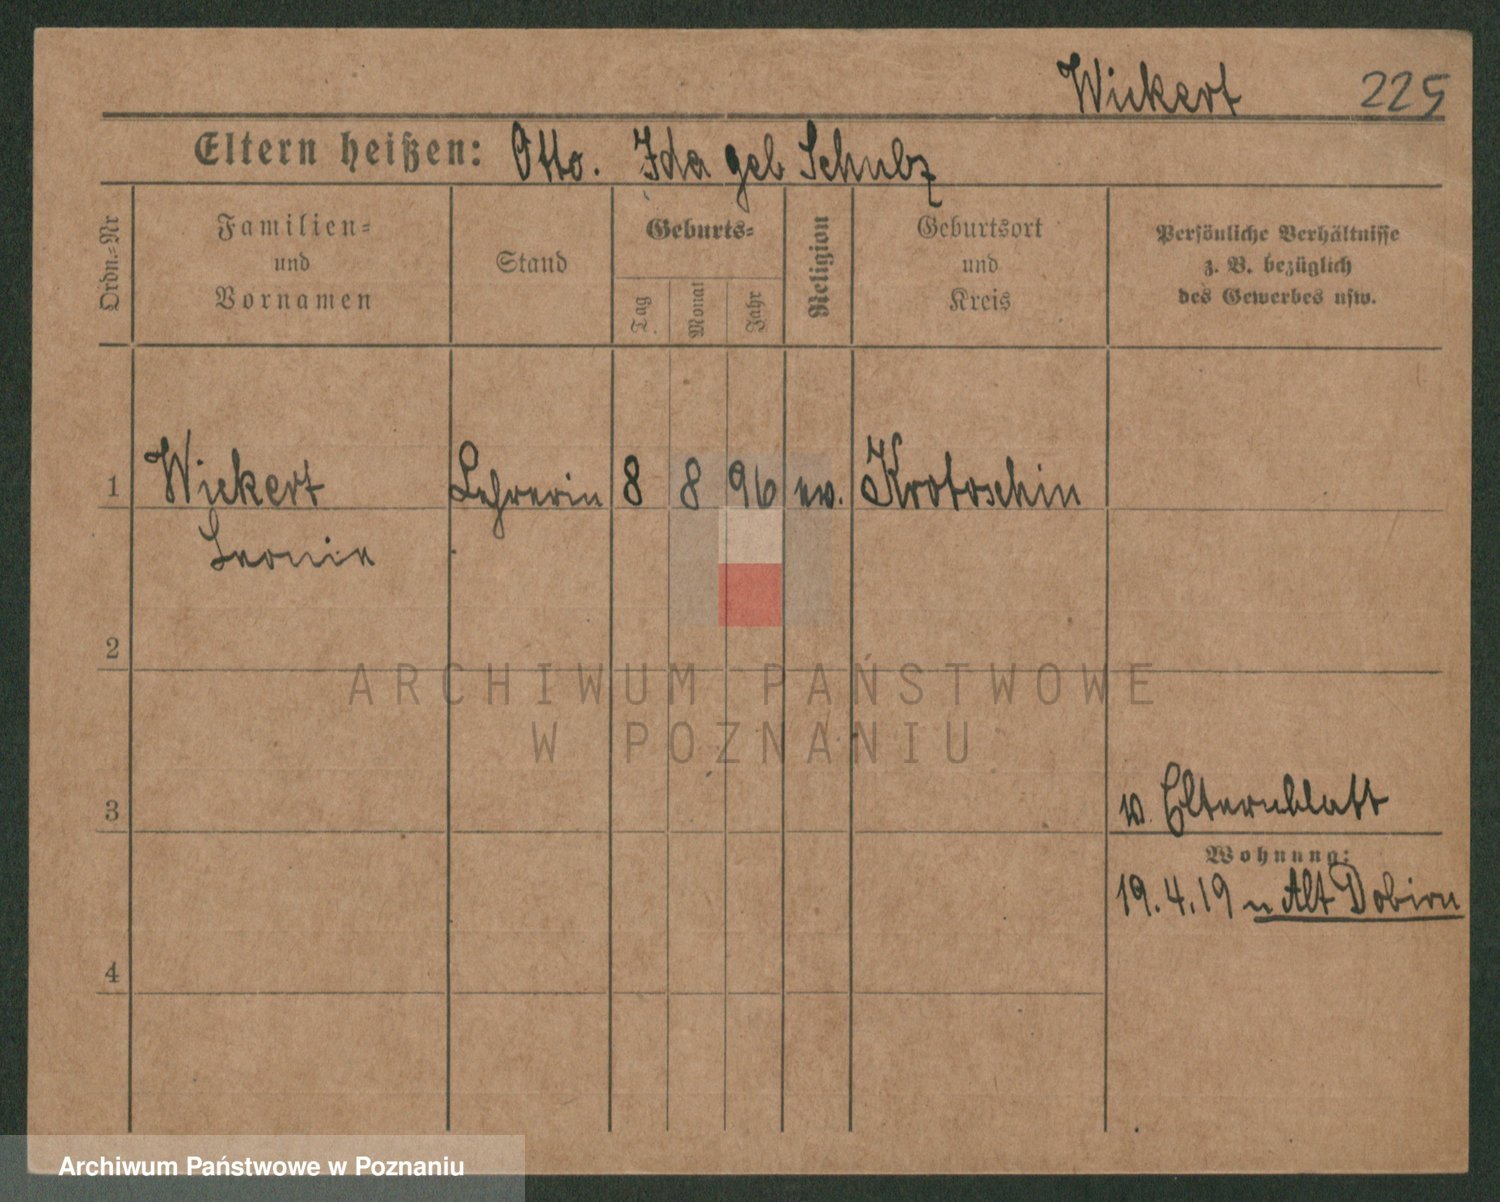 Wickert 225
Eltern heißen: Otto. Ida geb Schulz
Ordn.=Nr
Familien=
und
Vornamen
Stand
Geburts=
Tag
Monat
Jahr
Religion
Geburtsort
und
Kreis
Persönliche Verhältnisse
z. B. bezüglich
des Gewerbes usw.
1 Wickert Lehrerin 8 8 96 ev. Krotoschin
Leonie
2
ARCHIWUM PAŃSTWOWE
W POZNANIU
3 v. Elternblatt
Wohnung:
19.4.19 n Alt
4
Archiwum Państwowe w Poznaniu